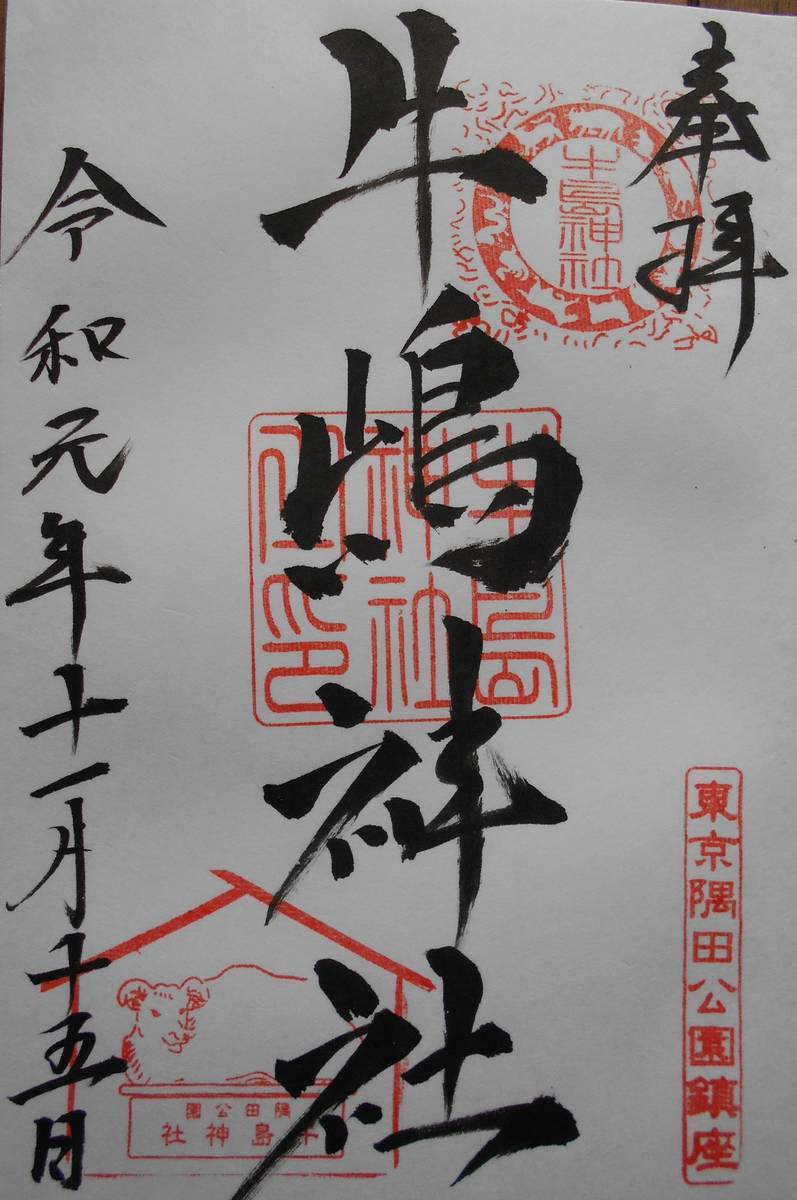 奉拝
牛島神社
牛嶋神社
牛島神社之印
東京隅田公園鎮座
隅田公園
牛島神社
令和元年十一月十五日